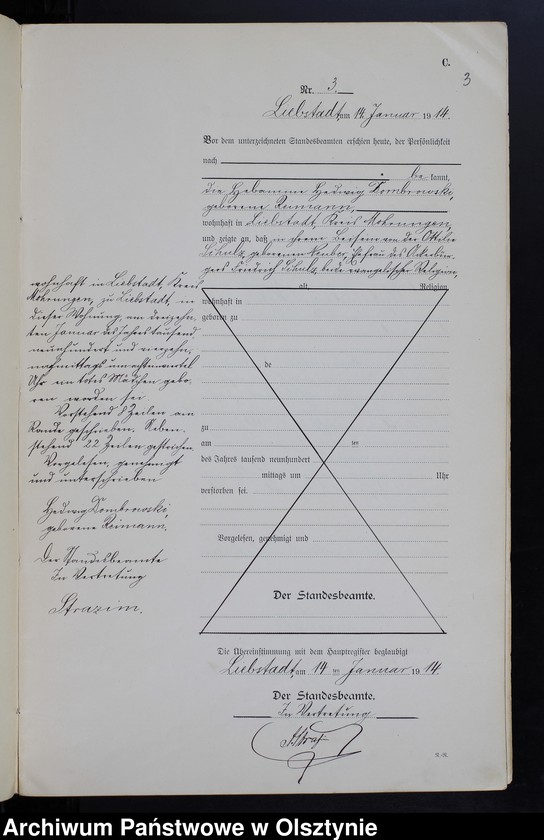 C.
3
Nr. 3.
Liebstadt, am 14. Januar 1914.
Vor dem unterzeichneten Standesbeamten erschien heute, der Persönlichkeit
nach
be kannt,
die Hebamme Hedwig Dombrowski,
geborene Reimann,
wohnhaft in Liebstadt, Kreis Mohrungen,
und zeigte an, daß in ihrem Beisein von der Ottilie
Schulz, geborenen Neuber, Ehefrau des Ackerbür-
gers Friedrich Schulz, beide evangelischer Religion,
alt, Religion
wohnhaft in
geboren zu
de
zu
am ten
des Jahres tausend neunhundert
mittags um Uhr
verstorben sei.
Vorgelesen, genehmigt und
Der Standesbeamte.
wohnhaft in Liebstadt, Kreis
Mohrungen, zu Liebstadt, in
dieser Wohnung, am dreizehn-
ten Januar des Jahres tausend
neunhundert und vierzehn,
nachmittags um achteinviertel
Uhr ein totes Mädchen gebo-
ren worden sei.
Vorstehend 8 Zeilen am
Rande geschrieben. Neben-
stehend 22 Zeilen gestrichen.
Vorgelesen, genehmigt
und unterschrieben
Hedwig Dombrowski,
geborene Reimann.
Der Standesbeamte
In Vertretung
Strazim.
Die Übereinstimmung mit dem Hauptregister beglaubigt
Liebstadt, am 14 ten Januar 1914.
Der Standesbeamte.
In Vertretung
Archiwum Państwowe w Olsztynie